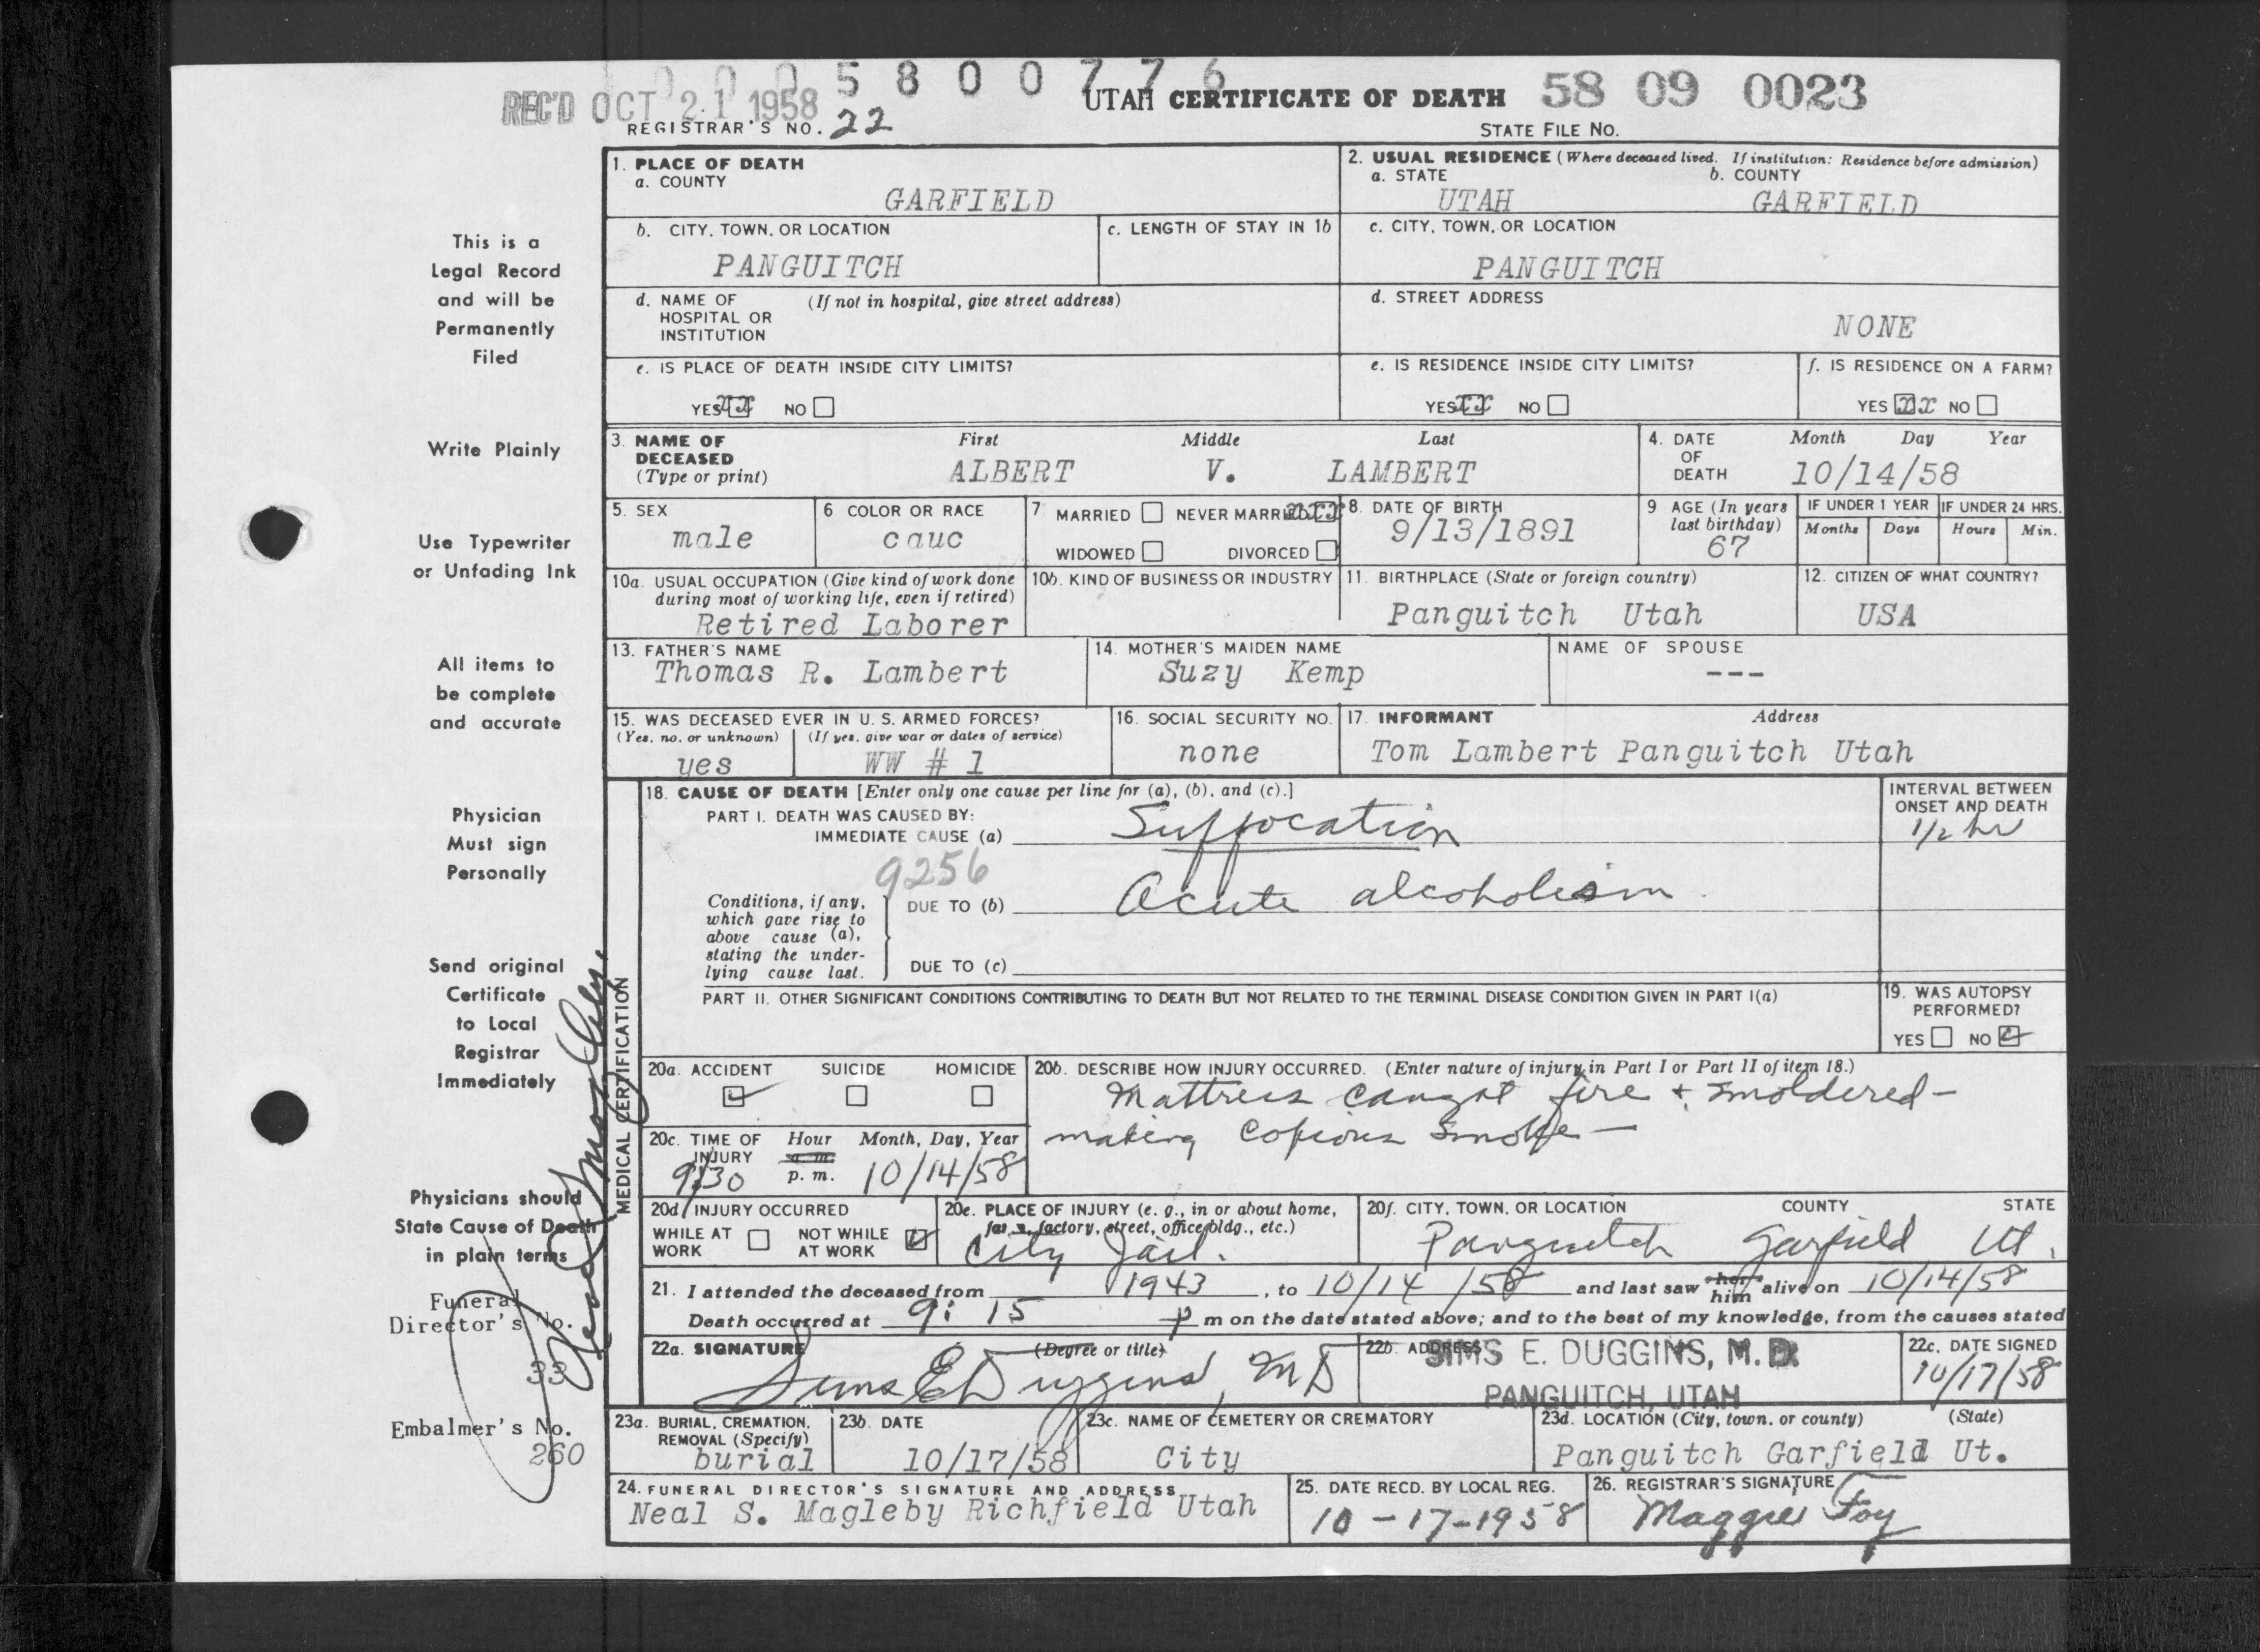 0 0 0 5 8 0 0 7 7 6
REC'D OCT 21 1958 UTAH CERTIFICATE OF DEATH 58 09 0023
REGISTRAR'S NO. 22 STATE FILE NO.
This is a
Legal Record
and will be
Permanently
Filed
Write Plainly
Use Typewriter
or Unfading Ink
All items to
be complete
and accurate
Physician
Must sign
Personally
Send original
Certificate
to Local
Registrar
Immediately
Physicians should
State Cause of Death
in plain terms
Funeral
Director's No.
33
Embalmer's No.
260
1. PLACE OF DEATH
a. COUNTY
GARFIELD
2. USUAL RESIDENCE (Where deceased lived. If institution: Residence before admission)
a. STATE b. COUNTY
UTAH GARFIELD
b. CITY, TOWN, OR LOCATION c. LENGTH OF STAY IN 1b
PANGUITCH
c. CITY, TOWN, OR LOCATION
PANGUITCH
d. NAME OF (If not in hospital, give street address)
HOSPITAL OR
INSTITUTION
d. STREET ADDRESS
NONE
e. IS PLACE OF DEATH INSIDE CITY LIMITS?
YES xx NO
e. IS RESIDENCE INSIDE CITY LIMITS?
YES xx NO
f. IS RESIDENCE ON A FARM?
YES xx NO
3. NAME OF DECEASED (Type or print) First Middle Last
ALBERT V. LAMBERT
4. DATE OF DEATH Month Day Year
10/14/58
5. SEX
male
6. COLOR OR RACE
cauc
7. MARRIED NEVER MARRIED xxx
WIDOWED DIVORCED
8. DATE OF BIRTH
9/13/1891
9 AGE (In years last birthday)
67
IF UNDER 1 YEAR IF UNDER 24 HRS.
Months Days Hours Min.
10a. USUAL OCCUPATION (Give kind of work done
during most of working life, even if retired)
Retired Laborer
10b. KIND OF BUSINESS OR INDUSTRY
11. BIRTHPLACE (State or foreign country)
Panguitch Utah
12. CITIZEN OF WHAT COUNTRY?
USA
13. FATHER'S NAME
Thomas R. Lambert
14. MOTHER'S MAIDEN NAME
Suzy Kemp
NAME OF SPOUSE
---
15. WAS DECEASED EVER IN U. S. ARMED FORCES?
(Yes, no, or unknown) (If yes, give war or dates of service)
yes WW # 1
16. SOCIAL SECURITY NO.
none
17. INFORMANT Address
Tom Lambert Panguitch Utah
MEDICAL CERTIFICATION
18. CAUSE OF DEATH [Enter only one cause per line for (a), (b), and (c).]
PART I. DEATH WAS CAUSED BY:
IMMEDIATE CAUSE (a) Suffocation
INTERVAL BETWEEN
ONSET AND DEATH
1/2 hr
9256
Conditions, if any,
which gave rise to
above cause (a),
stating the under-
lying cause last.
DUE TO (b) Acute alcoholism
DUE TO (c)
PART II. OTHER SIGNIFICANT CONDITIONS CONTRIBUTING TO DEATH BUT NOT RELATED TO THE TERMINAL DISEASE CONDITION GIVEN IN PART I(a)
19. WAS AUTOPSY
PERFORMED?
YES NO
20a. ACCIDENT SUICIDE HOMICIDE
20b. DESCRIBE HOW INJURY OCCURRED. (Enter nature of injury in Part I or Part II of item 18.)
Mattress caught fire + smoldered -
making copious smoke -
20c. TIME OF INJURY Hour Month, Day, Year
a. m.
9:30 p. m. 10/14/58
20d. INJURY OCCURRED
WHILE AT WORK NOT WHILE AT WORK
20e. PLACE OF INJURY (e. g., in or about home,
farm, factory, street, office bldg., etc.)
City Jail.
20f. CITY, TOWN, OR LOCATION COUNTY STATE
Panguitch Garfield Ut.
21. I attended the deceased from 1943, to 10/14/58 and last saw her him alive on 10/14/58
Death occurred at 9:15 p m on the date stated above; and to the best of my knowledge, from the causes stated
22a. SIGNATURE (Degree or title)
Sims E Duggins, MD
22b. ADDRESS
SIMS E. DUGGINS, M. D.
PANGUITCH, UTAH
22c. DATE SIGNED
10/17/58
23a. BURIAL, CREMATION,
REMOVAL (Specify)
burial
23b. DATE
10/17/58
23c. NAME OF CEMETERY OR CREMATORY
City
23d. LOCATION (City, town, or county) (State)
Panguitch Garfield Ut.
24. FUNERAL DIRECTOR'S SIGNATURE AND ADDRESS
Neal S. Magleby Richfield Utah
25. DATE RECD. BY LOCAL REG.
10-17-1958
26. REGISTRAR'S SIGNATURE
Maggie Foy